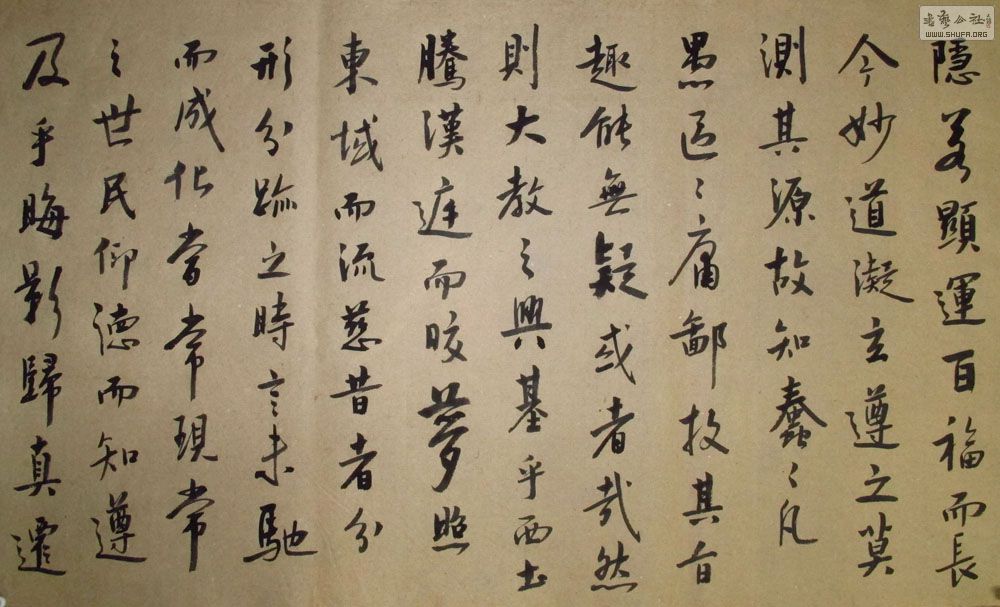 隱若顯運百福而長
今妙道凝玄遵之莫
測其源故知蠢〻凡
愚區〻庸鄙投其旨
趣能無疑或者哉然
則大教之興基乎西土
騰漢庭而皎夢照
東域而流慈昔者分
形分跡之時言未馳
而成化當常現常
之世民仰德而知遵
及乎晦影歸真遷
書藝公社
WWW.SHUFA.ORG